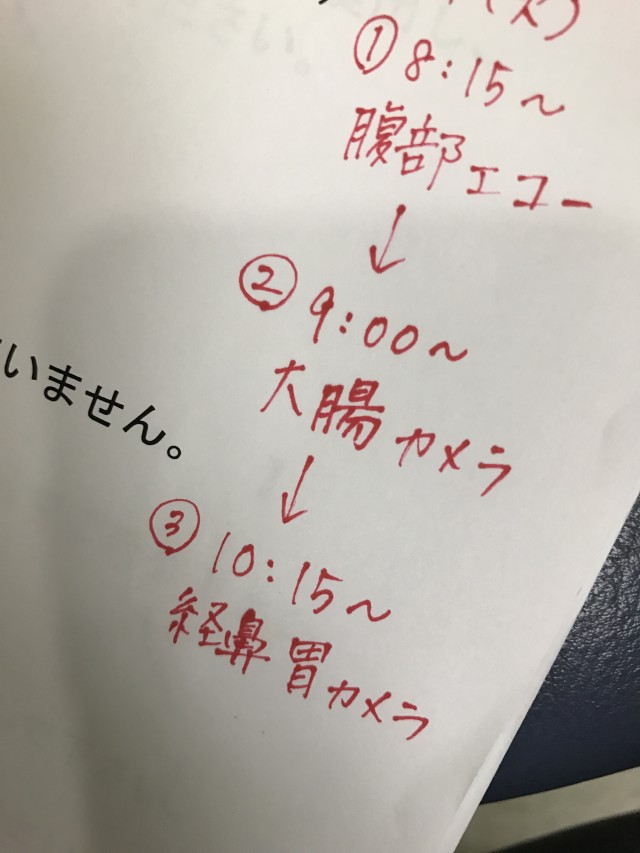 (火)
① 8:15～
腹部エコー
↓
② 9:00～
大腸カメラ
↓
③ 10:15～
経鼻胃カメラ
いません。